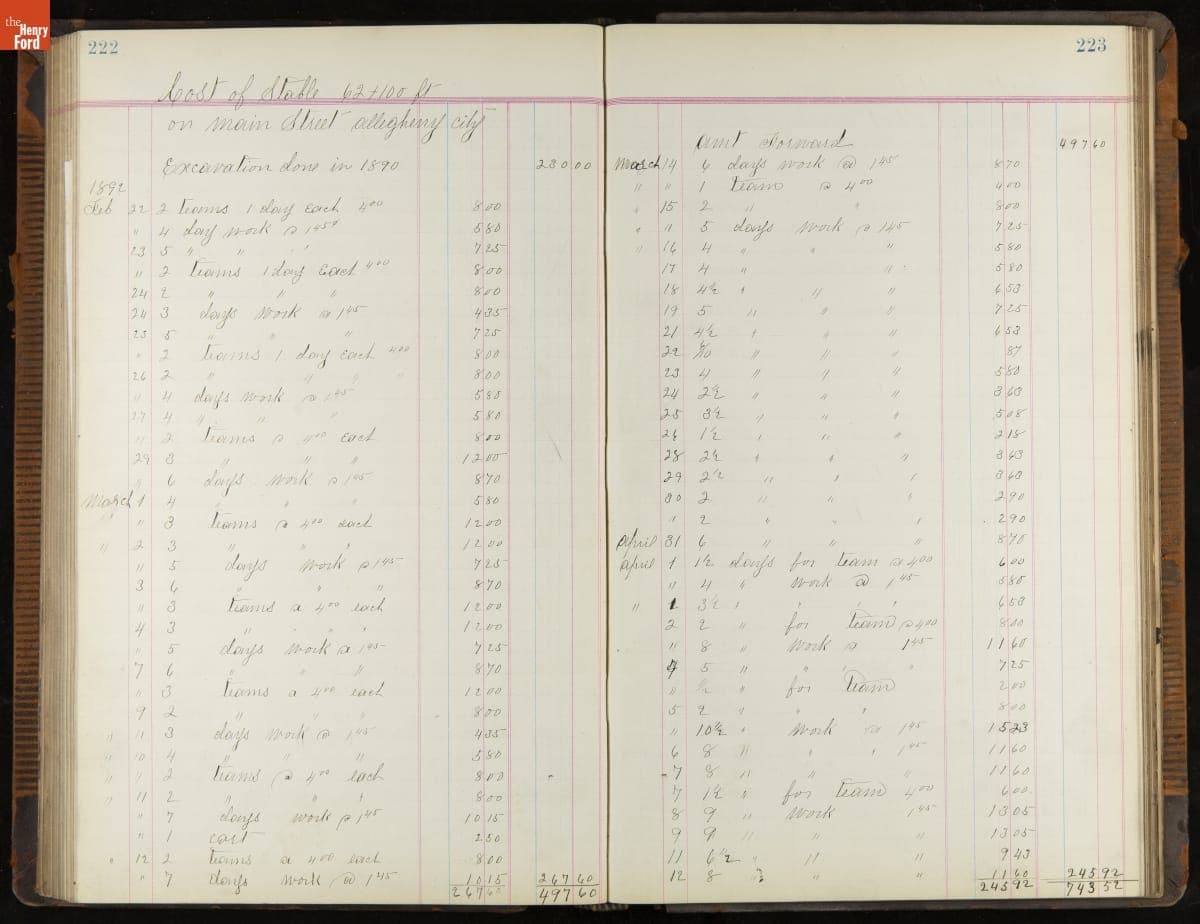 the Henry Ford
222
Cost of Stable 62+100 ft
on main Street allegheny city
Excavation done in 1890 230.00
1892
Feb 22 2 teams 1 day Each 400 8 00
" 4 day work @ 1 45 5 80
23 5 " " " 7 25
" 2 teams 1 day Each 4 00 8 00
24 2 " " " 8 00
24 3 days work @ 1 45 4 35
25 5 " " 7 25
" 2 teams 1 day Each 4 00 8 00
26 2 " " " " 8 00
" 4 days work @ 1 45 5 80
27 4 " " " 5 80
" 2 teams @ 4 00 each 8 00
29 3 " " " 12 00
" 6 days work @ 1 45 8 70
March 1 4 " " " 5 80
" " 3 teams @ 4 00 each 12 00
" 2 3 " " " 12 00
" 5 days work @ 1 45 7 25
3 6 " " " 8 70
" 3 teams a 4 00 each 12 00
4 3 " " " 12 00
" 5 days work @ 1 45 7 25
7 6 " " " 8 70
" 3 teams a 4 00 each 12 00
9 2 " " " 8 00
" " 3 days work @ 1 45 4 35
" 10 4 " " " 5 80
" " 2 teams @ 4 00 each 8 00
" 11 2 " " " 8 00
" 7 days work @ 1 45 10 15
" 1 cart 2 50
" 12 2 teams a 4 00 each 8 00
" 7 days work @ 1 45 10 15 267 60
267 60 497 60
223
amt Forward 497 60
March 14 6 days work @ 1 45 8 70
" " 1 team @ 4 00 4 00
" 15 2 " " 8 00
" " 5 days work @ 1 45 7 25
" 16 4 " " " 5 80
17 4 " " 5 80
18 4½ " " " 6 53
19 5 " " " 7 25
21 4½ " " " 6 53
22 6/10 " " " 87
23 4 " " " 5 80
24 2½ " " " 3 63
25 3½ " " " 5 08
26 1½ " " " 2 18
28 2½ " " " 3 63
29 2½ " " " 3 63
30 2 " " " 2 90
" 2 " " " 2 90
April 31 6 " " " 8 70
April 1 1½ days for team @ 4 00 6 00
" 4 " work @ 1 45 5 80
" 1 3½ " " " " 6 53
2 2 " for team @ 4 00 8 00
" 8 " work @ 1 45 11 60
4 5 " " " " 7 25
" ½ " for team 2 00
5 2 " " " 8 00
" 10½ " work @ 1 45 15 23
6 8 " " " 1 45 11 60
7 8 " " " 11 60
7 1½ " for team 4 00 6 00
8 9 " work 1 45 13 05
9 9 " " " 13 05
11 6½ " " " 9 43
12 8 " " " 11 60 245 92
245 92 743 52